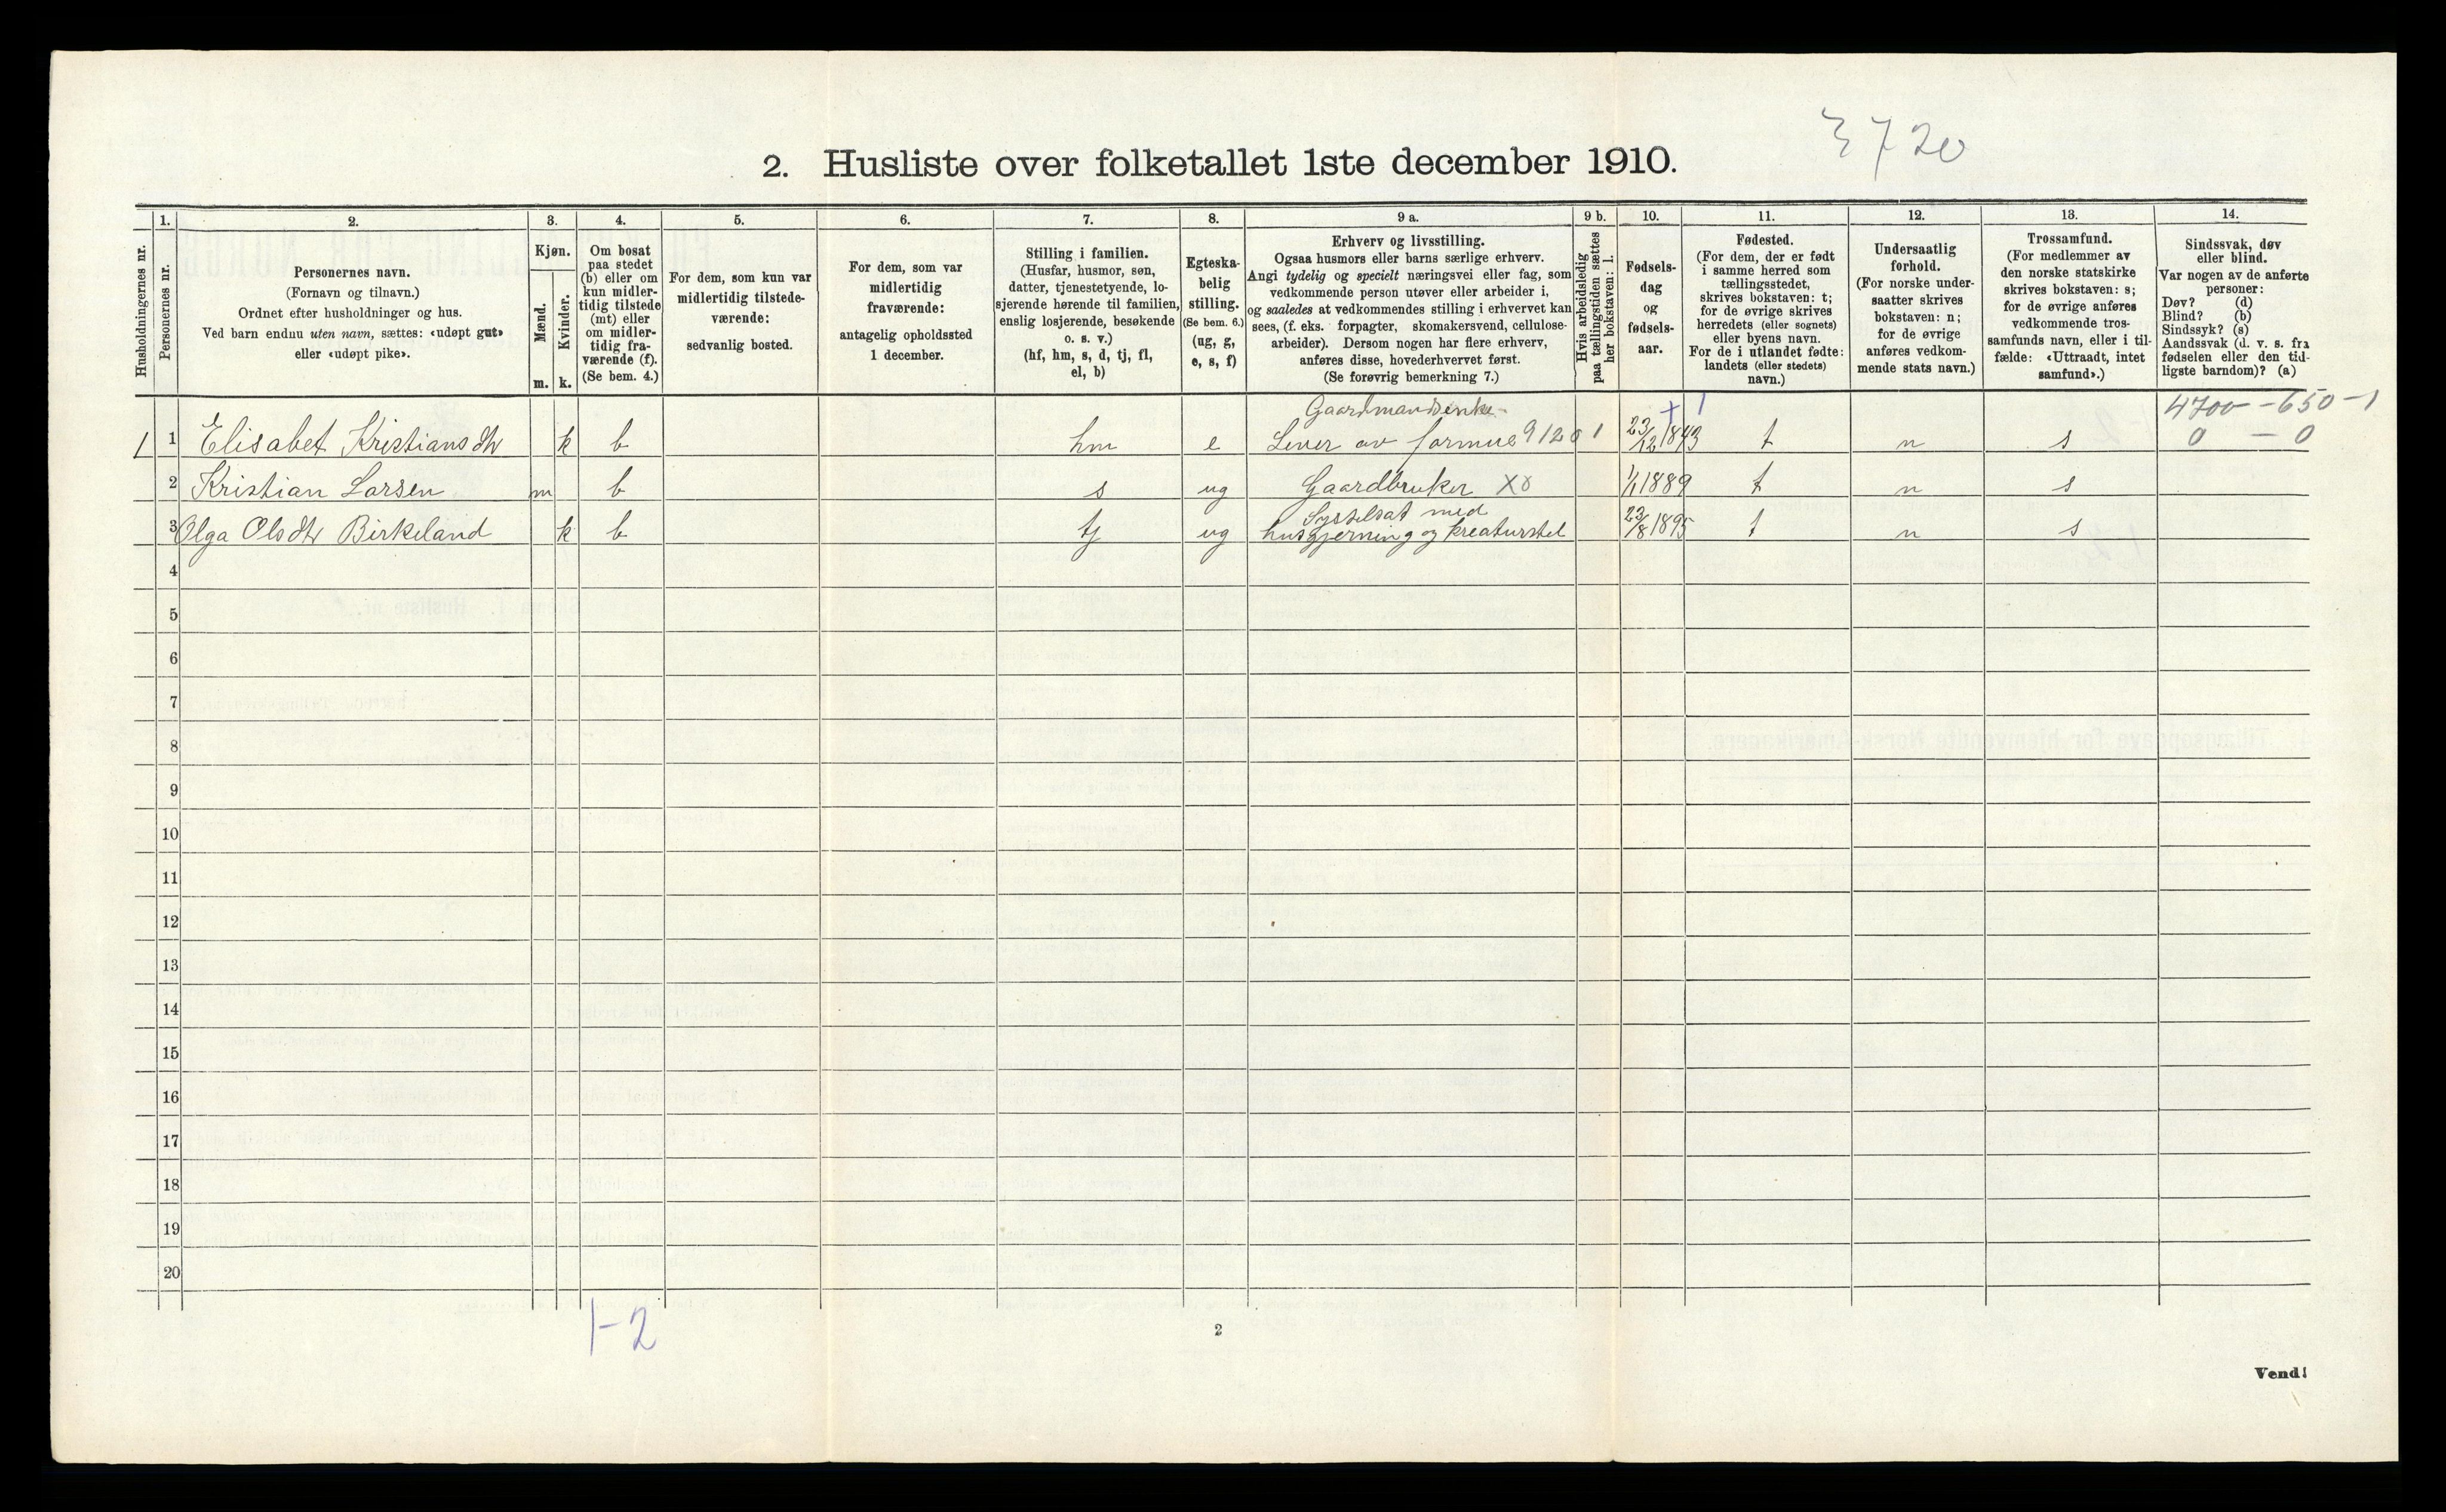 3720
2. Husliste over folketallet 1ste december 1910.
Husholdningernes nr.
1.
Personernes nr.
2.
Personernes navn.
(Fornavn og tilnavn.)
Ordnet efter husholdninger og hus.
Ved barn endnu uten navn, sættes: «udøpt gut»
eller «udøpt pike».
3.
Kjøn.
Mænd.
Kvinder.
m. k.
4.
Om bosat
paa stedet
(b) eller om
kun midler-
tidig tilstede
(mt) eller
om midler-
tidig fra-
værende (f).
(Se bem. 4.)
5.
For dem, som kun var
midlertidig tilstede-
værende:
sedvanlig bosted.
6.
For dem, som var
midlertidig
fraværende:
antagelig opholdssted
1 december.
7.
Stilling i familien.
(Husfar, husmor, søn,
datter, tjenestetyende, lo-
sjerende hørende til familien,
enslig losjerende, besøkende
o. s. v.)
(hf, hm, s, d, tj, fl,
el, b)
8.
Egteska-
belig
stilling.
(Se bem. 6.)
(ug, g,
e, s, f)
9 a.
Erhverv og livsstilling.
Ogsaa husmors eller barns særlige erhverv.
Angi tydelig og specielt næringsvei eller fag, som
vedkommende person utøver eller arbeider i,
og saaledes at vedkommendes stilling i erhvervet kan
sees, (f. eks. forpagter, skomakersvend, cellulose-
arbeider). Dersom nogen har flere erhverv,
anføres disse, hovederhvervet først.
(Se forøvrig bemerkning 7.)
9 b.
Hvis arbeidsledig
paa tællingstiden sættes
her bokstaven: l.
10.
Fødsels-
dag
og
fødsels-
aar.
11.
Fødested.
(For dem, der er født
i samme herred som
tællingsstedet,
skrives bokstaven: t;
for de øvrige skrives
herredets (eller sognets)
eller byens navn.
For de i utlandet fødte:
landets (eller stedets)
navn.)
12.
Undersaatlig
forhold.
(For norske under-
saatter skrives
bokstaven: n;
for de øvrige
anføres vedkom-
mende stats navn.)
13.
Trossamfund.
(For medlemmer av
den norske statskirke
skrives bokstaven: s;
for de øvrige anføres
vedkommende tros-
samfunds navn, eller i til-
fælde: «Uttraadt, intet
samfund».)
14.
Sindssvak, døv
eller blind.
Var nogen av de anførte
personer:
Døv? (d)
Blind? (b)
Sindssyk? (s)
Aandssvak (d. v. s. fra
fødselen eller den tid-
ligste barndom)? (a)
Gaardmandsenke + 1 4700 - 650 - 1
1 1 Elisabet Kristiansdtr k b hm e Lever av formue 91201 23/12 1843 t n s 0 - 0
2 Kristian Larsen m b s ug Gaardbruker X8 1/1 1889 t n s
Sysselsat med
3 Olga Olsdtr Birkeland k b tj ug husgjerning og kreaturstel 23/8 1895 t n s
4
5
6
7
8
9
10
11
12
13
14
15
16
17
18
19
20
1-2
2
Vend!